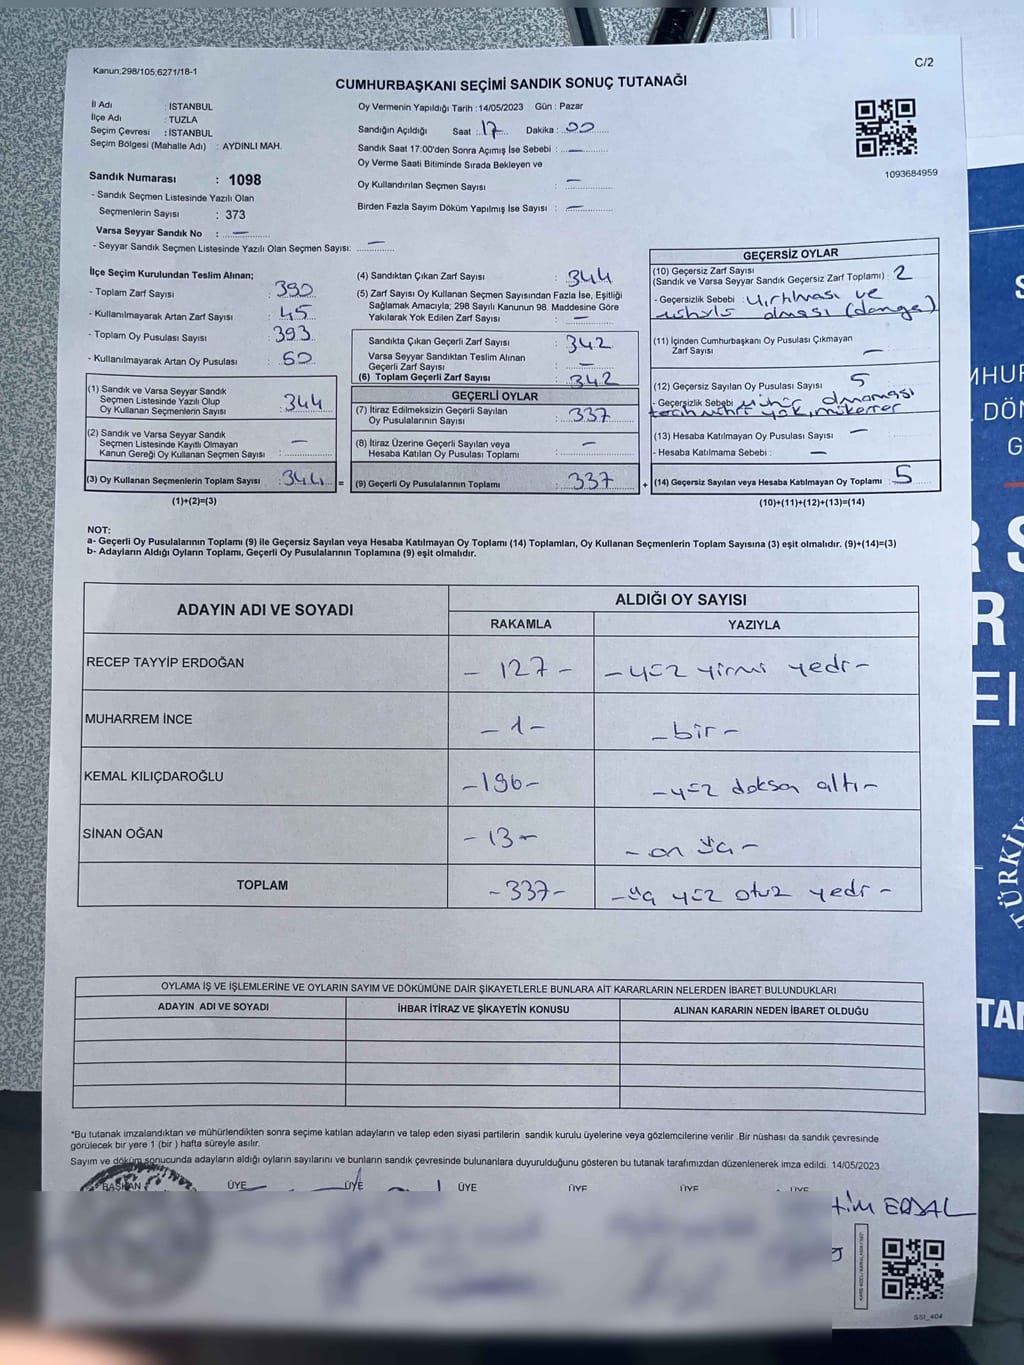 Kanun:298/105;6271/18-1
C/2
CUMHURBAŞKANI SEÇİMİ SANDIK SONUÇ TUTANAĞI
İl Adı : İSTANBUL
İlçe Adı : TUZLA
Seçim Çevresi : İSTANBUL
Seçim Bölgesi (Mahalle Adı) : AYDINLI MAH.
Oy Vermenin Yapıldığı Tarih :14/05/2023 Gün : Pazar
Sandığın Açıldığı Saat : 17 Dakika : 00
Sandık Saat 17:00'den Sonra Açımış İse Sebebi : —
Oy Verme Saati Bitiminde Sırada Bekleyen ve
Oy Kullandırılan Seçmen Sayısı : —
Birden Fazla Sayım Döküm Yapılmış İse Sayısı : —
1093684959
Sandık Numarası : 1098
- Sandık Seçmen Listesinde Yazılı Olan
Seçmenlerin Sayısı : 373
Varsa Seyyar Sandık No : —
- Seyyar Sandık Seçmen Listesinde Yazılı Olan Seçmen Sayısı: —
İlçe Seçim Kurulundan Teslim Alınan;
- Toplam Zarf Sayısı : 390
- Kullanılmayarak Artan Zarf Sayısı : 45
- Toplam Oy Pusulası Sayısı : 393
- Kullanılmayarak Artan Oy Pusulası : 60
(1) Sandık ve Varsa Seyyar Sandık
Seçmen Listesinde Yazılı Olup
Oy Kullanan Seçmenlerin Sayısı : 344
(2) Sandık ve Varsa Seyyar Sandık
Seçmen Listesinde Kayıtlı Olmayan
Kanun Gereği Oy Kullanan Seçmen Sayısı : —
(3) Oy Kullanan Seçmenlerin Toplam Sayısı : 344 =
(1)+(2)=(3)
(4) Sandıktan Çıkan Zarf Sayısı : 344
(5) Zarf Sayısı Oy Kullanan Seçmen Sayısından Fazla İse, Eşitliği
Sağlamak Amacıyla; 298 Sayılı Kanunun 98. Maddesine Göre
Yakılarak Yok Edilen Zarf Sayısı : —
Sandıkta Çıkan Geçerli Zarf Sayısı : 342
Varsa Seyyar Sandıktan Teslim Alınan
Geçerli Zarf Sayısı : —
(6) Toplam Geçerli Zarf Sayısı : 342
GEÇERLİ OYLAR
(7) İtiraz Edilmeksizin Geçerli Sayılan
Oy Pusulalarının Sayısı : 337
(8) İtiraz Üzerine Geçerli Sayılan veya
Hesaba Katılan Oy Pusulası Toplamı : —
(9) Geçerli Oy Pusulalarının Toplamı : 337 +
GEÇERSİZ OYLAR
(10) Geçersiz Zarf Sayısı
(Sandık ve Varsa Seyyar Sandık Geçersiz Zarf Toplamı) : 2
- Geçersizlik Sebebi : yırtılması ve
olması (damga)
(11) İçinden Cumhurbaşkanı Oy Pusulası Çıkmayan
Zarf Sayısı —
(12) Geçersiz Sayılan Oy Pusulası Sayısı 5
- Geçersizlik Sebebi mühür olmaması
tercih mührü yok, mükerrer
(13) Hesaba Katılmayan Oy Pusulası Sayısı —
- Hesaba Katılmama Sebebi : —
(14) Geçersiz Sayılan veya Hesaba Katılmayan Oy Toplamı : 5
(10)+(11)+(12)+(13)=(14)
NOT:
a- Geçerli Oy Pusulalarının Toplamı (9) ile Geçersiz Sayılan veya Hesaba Katılmayan Oy Toplamı (14) Toplamları, Oy Kullanan Seçmenlerin Toplam Sayısına (3) eşit olmalıdır. (9)+(14)=(3)
b- Adayların Aldığı Oyların Toplamı, Geçerli Oy Pusulalarının Toplamına (9) eşit olmalıdır.
ADAYIN ADI VE SOYADI
ALDIĞI OY SAYISI
RAKAMLA YAZIYLA
RECEP TAYYİP ERDOĞAN – 127 – – yüz yirmi yedi –
MUHARREM İNCE – 1 – – bir –
KEMAL KILIÇDAROĞLU – 196 – – yüz doksan altı –
SİNAN OĞAN – 13 – – on üç –
TOPLAM – 337 – – üç yüz otuz yedi –
OYLAMA İŞ VE İŞLEMLERİNE VE OYLARIN SAYIM VE DÖKÜMÜNE DAİR ŞİKAYETLERLE BUNLARA AİT KARARLARIN NELERDEN İBARET BULUNDUKLARI
ADAYIN ADI VE SOYADI İHBAR İTİRAZ VE ŞİKAYETİN KONUSU ALINAN KARARIN NEDEN İBARET OLDUĞU
*Bu tutanak imzalandıktan ve mühürlendikten sonra seçime katılan adayların ve talep eden siyasi partilerin sandık kurulu üyelerine veya gözlemcilerine verilir .Bir nüshası da sandık çevresinde
görülecek bir yere 1 (bir ) hafta süreyle asılır.
Sayım ve döküm sonucunda adayların aldığı oyların sayılarını ve bunların sandık çevresinde bulunanlara duyurulduğunu gösteren bu tutanak tarafımızdan düzenlenerek imza edildi. 14/05/2023
BAŞKAN ÜYE ÜYE ÜYE ÜYE ÜYE ÜYE
tim ERDAL
SSI_404
TÜRKİY